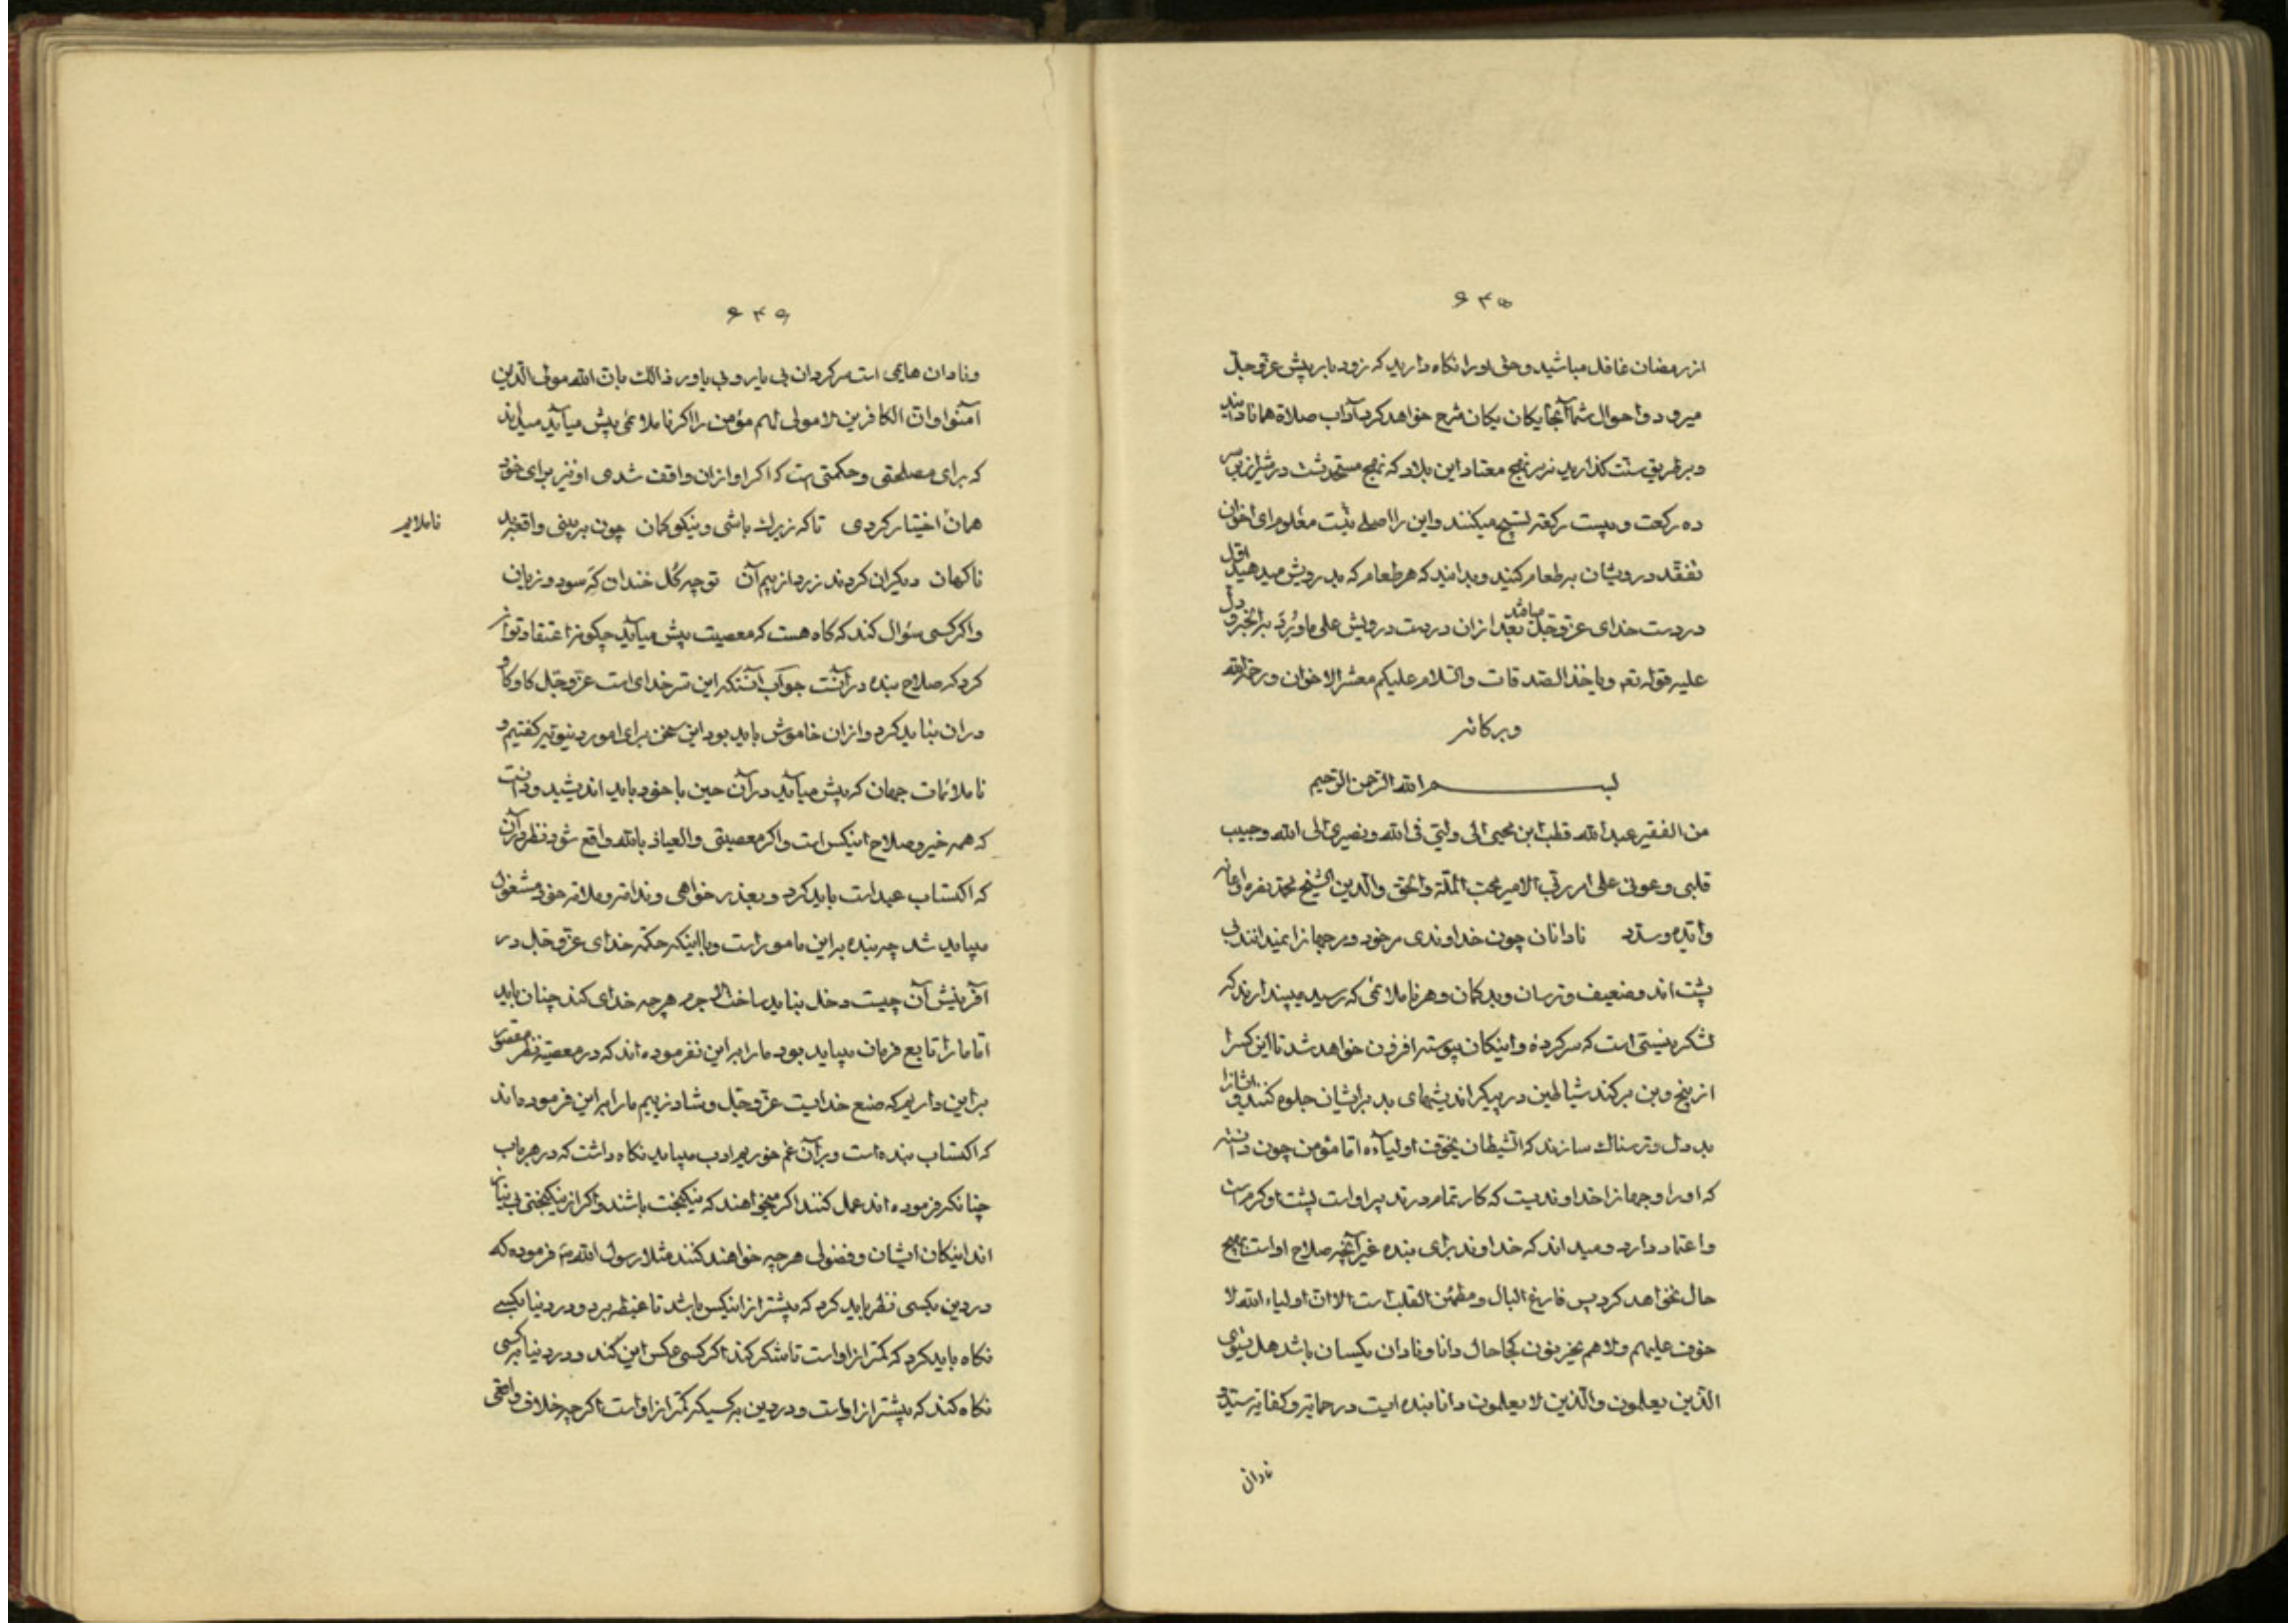 ۶۴۵
از رمضان غافل مباشید و حق او را نکاه دارید که زود بابر پیش عز و جل
میرود و احوال شما آنجا یکان یکان شرح خواهد کرد آداب صلاة همانا دانید
و بر طریق سنت کذارید نه بر نهج معتاد این بلاد که نهج مستحدثست در شیراز
ده رکعت و بیست رکعة تسبیح میکنند و این را اصلی نیست معلوم رای اخوان
تفقد درویشان بر طعام کنید و بدانید که هر طعام که بدرویش میدهید اول
در دست خدای عز و جل میافتد بعد از آن در دست درویش علی ما ورد به الخبر و دل
علیه قوله تعه و یاخذ الصدقات والسلام علیکم معشر الاخوان و رحمة الله
و برکاته
بسم الله الرحمن الرحیم
من الفقیر عبدالله قطب ابن محیی الی ولیی فی الله و نصیری الی الله و حبیب
قلبی و عونی علی امر ربی الامیر محب الملة والحق والدین الشیخ محمد
و ایده و سدده نادانان چون خداوندی مر خود و مر جهانرا نمیدانند بی
پشت اند و ضعیف و ترسان و بدکمان و هر ناملائمی که رسید میپندارند که
لشکر نیستی است که سر کرده و اینکان پیوسته افزون خواهد شد تا این کس را
از بیخ و بن بر کند شیاطین در پیکر اندیشهای بد بر ایشان جلوه کنند و ایشانرا
بد دل و ترسناک سازند که الشیطان یخوف اولیآءه اما مؤمن چون دانسته
که او را و جهانرا خداوندیست که کار تمام در تدبیر اواست پشت او کرم است
و اعتماد دارد و میداند که خداوند برای بنده غیر آنچه صلاح اواست بهیچ
حال نخواهد کرد پس فارغ البال و مطمئن القلب است الا ان اولیاء الله لا
خوف علیهم ولا هم یحزنون کجا حال دانا و نادان یکسان باشد هل یستوی
الذین یعلمون والذین لا یعلمون دانا بنده ایست در حمایة و کفایة سید
نادان
۶۴۶
و نادان هایمی است سرکردان بی یار و بی یاور ذالک بان الله مولی الذین
آمنوا و ان الکافرین لا مولی لهم مؤمن را اکر ناملائمی پیش میآید میداند
که برای مصلحتی و حکمتی است که اکر او از ان واقف شدی او نیز برای خود
همان اختیار کردی تا که زیرک باشی و نیکو کمان چون ببینی واقعه بد
ناملایم
ناکهان دیکران کردند زرد از بیم آن تو چو کل خندان که سود و زیان
و اکر کسی سؤال کند که کاه هست که معصیت پیش میآید چکونه اعتقاد توان
کرد که صلاح بنده در آنست جواب آنستکه این سر خدای است عز و جل کاوکاو
در ان نباید کرد و از ان خاموش باید بود این سخن برای امور دنیویه کفتیم و
ناملائمات جهان که پیش میآید در آن حین با خود باید اندیشید و دانست
که همه خیر و صلاح اینکس است و اکر معصیتی والعیاذ بالله واقع شود نظر در آن
که اکتساب عبد است باید کرد و بعذر خواهی و ندامة و ملامة خود مشغول
میباید شد چه بنده بر این مامور است و با اینکه حکمة خدای عز و جل در
آفرینش آن چیست دخل نباید ساخت لا جرم هر چه خدای کند چنان باید
اما ما را تابع فرمان میباید بود ما را بر این نفرموده اند که در معصیة نظر مقصور
بر این داریم که صنع خدایست عز و جل و شاد زییم ما را بر این فرموده اند
که اکتساب بنده است و بر آن غم خوریم ادب میباید نکاه داشت که در هر باب
چنانکه فرموده اند عمل کنند اکر میخواهند که نیکبخت باشند و اکر از نیکبختی بی نیاز
اند اینکان ایشان و فضولی هر چه خواهند کنند مثلا رسول الله فرموده که
در دین بکسی نظر باید کرد که بیشتر از اینکس باشد تا غبطه برد و در دنیا بکسی
نکاه باید کرد که کمتر از اواست تا شکر کند اکر کسی عکس این کند و در دنیا بکسی
نکاه کند که بیشتر از اواست و در دین به کسیکه کمتر از اواست اکر چه خلاف